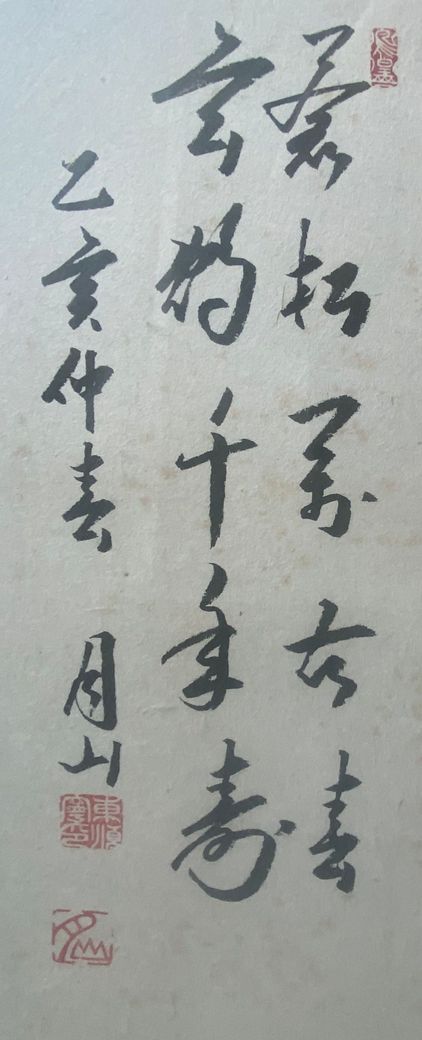 蒼松萬古春
玄鶴千年壽
乙亥仲春 月山